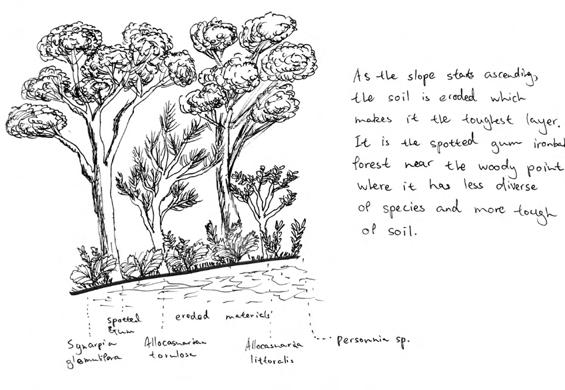 As the slope starts ascending,
the soil is eroded which
makes it the toughest layer.
It is the spotted gum ironba
forest near the woody point
where it has less diverse
of species and more tough
of soil.
spotted
Gum
eroded materials
Synarpia
glomulifera
Allocasuarina
torulosa
Allocasuarina
littoralis
Persoonia sp.